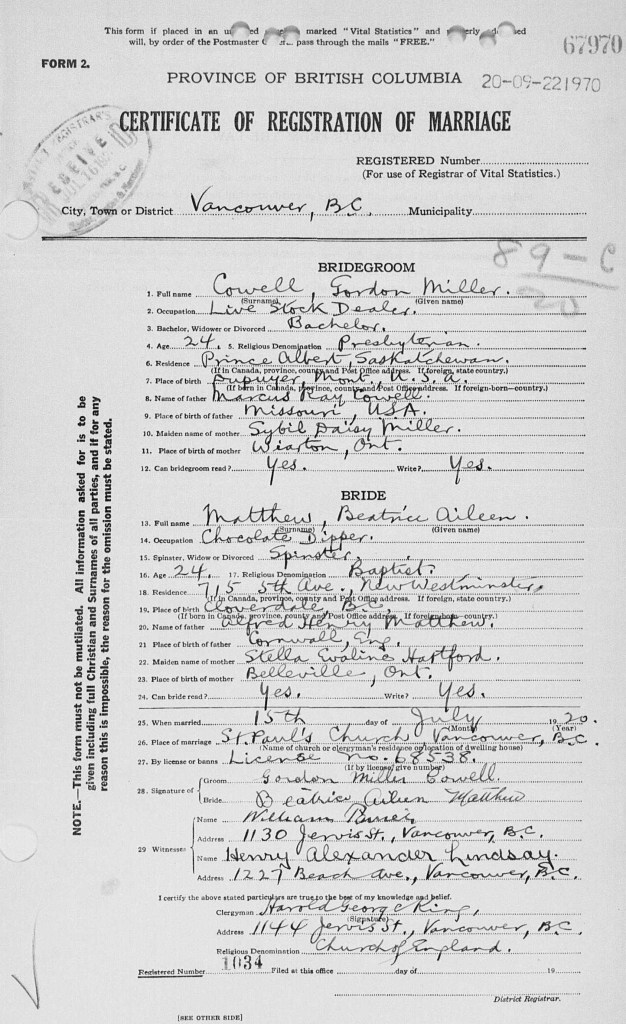 This form if placed in an marked "Vital Statistics" and
will, by order of the Postmaster pass through the mails "FREE."
67970
FORM 2.
PROVINCE OF BRITISH COLUMBIA
20-09-221970
CERTIFICATE OF REGISTRATION OF MARRIAGE
REGISTERED Number
(For use of Registrar of Vital Statistics.)
City, Town or District Vancouver, B.C. Municipality
89-C
20
BRIDEGROOM
1. Full name Cowell, Gordon Miller.
(Surname) (Given name)
2. Occupation Live Stock Dealer.
3. Bachelor, Widower or Divorced Bachelor.
4. Age 24. 5. Religious Denomination Presbyterian.
6. Residence Prince Albert, Saskatchewan.
(If in Canada, province, county and Post Office address. If foreign, state country)
7. Place of birth Dupuyer, Mont. U.S.A.
(If born in Canada, province, county and Post Office address. If foreign-born—country.)
8. Name of father Marcus Ray Cowell.
9. Place of birth of father Missouri, USA.
10. Maiden name of mother Sybil Daisy Miller.
11. Place of birth of mother Wiarton, Ont.
12. Can bridegroom read? Yes. Write? Yes.
BRIDE
13. Full name Matthew, Beatrice Aileen.
(Surname) (Given name)
14. Occupation Chocolate Dipper.
15. Spinster, Widow or Divorced Spinster.
16. Age 24. 17. Religious Denomination Baptist.
18. Residence 715 5th Ave. New Westminster
(If in Canada, province, county and Post Office address. If foreign, state country)
19. Place of birth Cloverdale, B.C.
(If born in Canada, province, county and Post Office address. If foreign-born—country.)
20. Name of father Alfred Henry Matthew.
21. Place of birth of father Cornwall, Eng.
22. Maiden name of mother Stella Evaline Hartford.
23. Place of birth of mother Belleville, Ont.
24. Can bride read? Yes. Write? Yes.
25. When married 15th day of July 1920.
(Month) (Year)
26. Place of marriage St. Paul's Church, Vancouver, B.C.
(Name of church or clergyman's residence or location of dwelling house)
27. By license or banns License No. 68538.
(If by license, give number)
28. Signature of Groom Gordon Miller Cowell.
Bride Beatrice Aileen Matthew
29 Witnesses Name William
Address 1130 Jervis St., Vancouver, B.C.
Name Henry Alexander Lindsay.
Address 1227 Beach Ave., Vancouver, B.C.
I certify the above stated particulars are true to the best of my knowledge and belief.
Clergyman Harold George King,
(Signature)
Address 1144 Jervis St., Vancouver, B.C.
Religious Denomination Church of England.
Registered Number 1034 Filed at this office day of 19
District Registrar.
[SEE OTHER SIDE]
NOTE.—This form must not be mutilated. All information asked for is to be
given including full Christian and Surnames of all parties, and if for any
reason this is impossible, the reason for the omission must be stated.